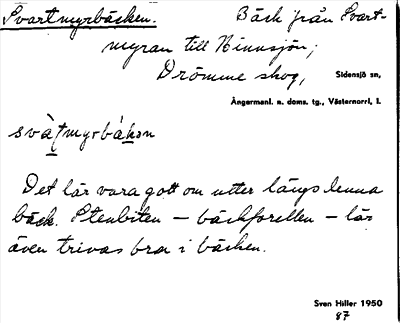 Svartmyrbäcken. Bäck från Svart-
myran till Ninnsjön;
Drömme skog, Sidensjö sn,
Ångermanl. n. doms. tg., Västernorrl. l.
Det lär vara gott om utter längs denna
bäck. Stenbiten – bäckforellen – lär
även trivas bra i bäcken.
Sven Hiller 1950
87